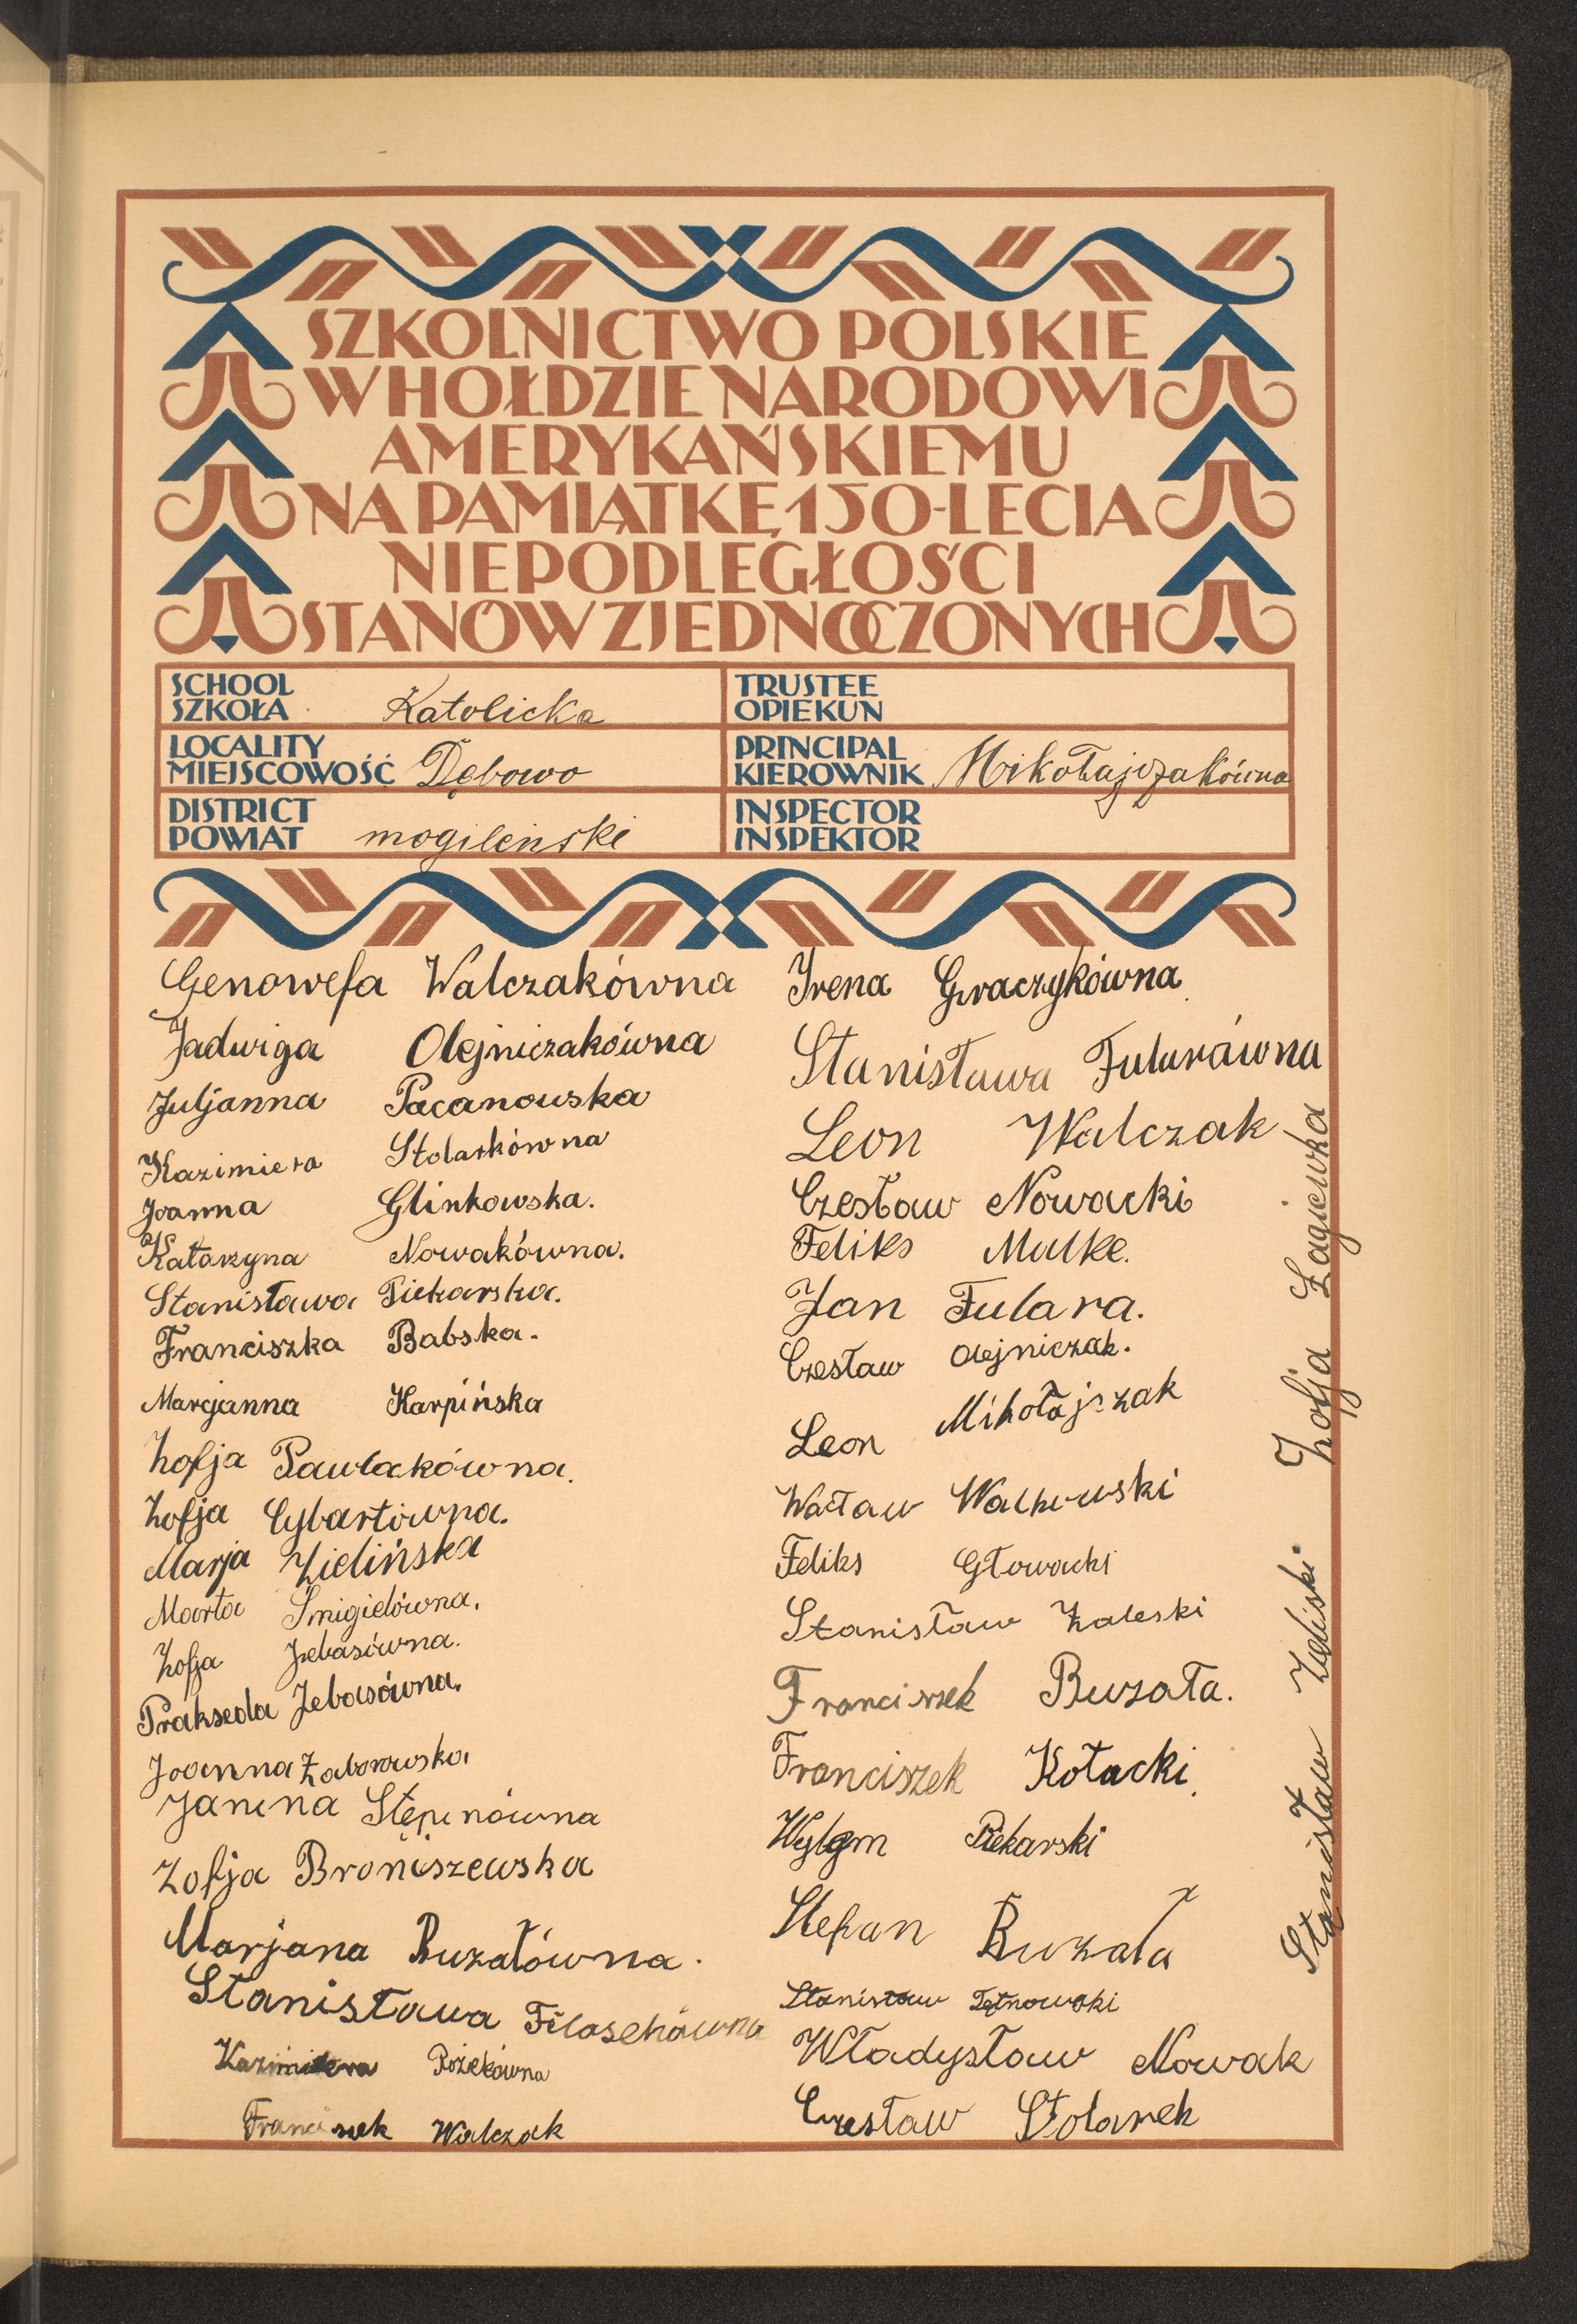 SZKOLNICTWO POLSKIE
W HOŁDZIE NARODOWI
AMERYKAŃSKIEMU
NA PAMIĄTKĘ 150-LECIA
NIEPODLEGŁOŚCI
STANÓW ZJEDNOCZONYCH
SCHOOL
SZKOŁA Katolicka
TRUSTEE
OPIEKUN
LOCALITY
MIEJSCOWOŚĆ Dębowo
PRINCIPAL
KIEROWNIK Mikołajczakówna
DISTRICT
POWIAT mogileński
INSPECTOR
INSPEKTOR
Genowefa Walczakówna
Jadwiga Olejniczakówna
Juljanna Pacanowska
Kazimiera Stolarkówna
Joanna Glinkowska.
Katarzyna Nowakówna.
Stanisława Piekarska.
Franciszka Babska.
Marjanna Karpińska
Zofja Pawlakówna.
Zofja Cybartówna.
Marja Zielińska
Marta Śmigielówna.
Zofja Jebasówna.
Prakseda Jebasówna.
Joanna Zaborowska
Janina Stępinówna
Zofja Broniszewska
Marjana Buzałówna.
Stanisława
Kazimiera Rożekówna
Franciszek Walczak
Irena Graczykówna
Stanisława Fularówna
Leon Walczak
Czesław Nowacki
Feliks Malke.
Jan Fulara.
Czesław Olejniczak.
Leon Mikołajczak
Wacław Walkowski
Feliks Głowacki
Stanisław Zaleski
Franciszek Buzała.
Franciszek Kołacki.
Piekarski
Stefan Buzała
Stanisław Tętnowski
Władysław Nowak
Czesław Stolarek
Stanisław Zieliski Zofja Łagiewka